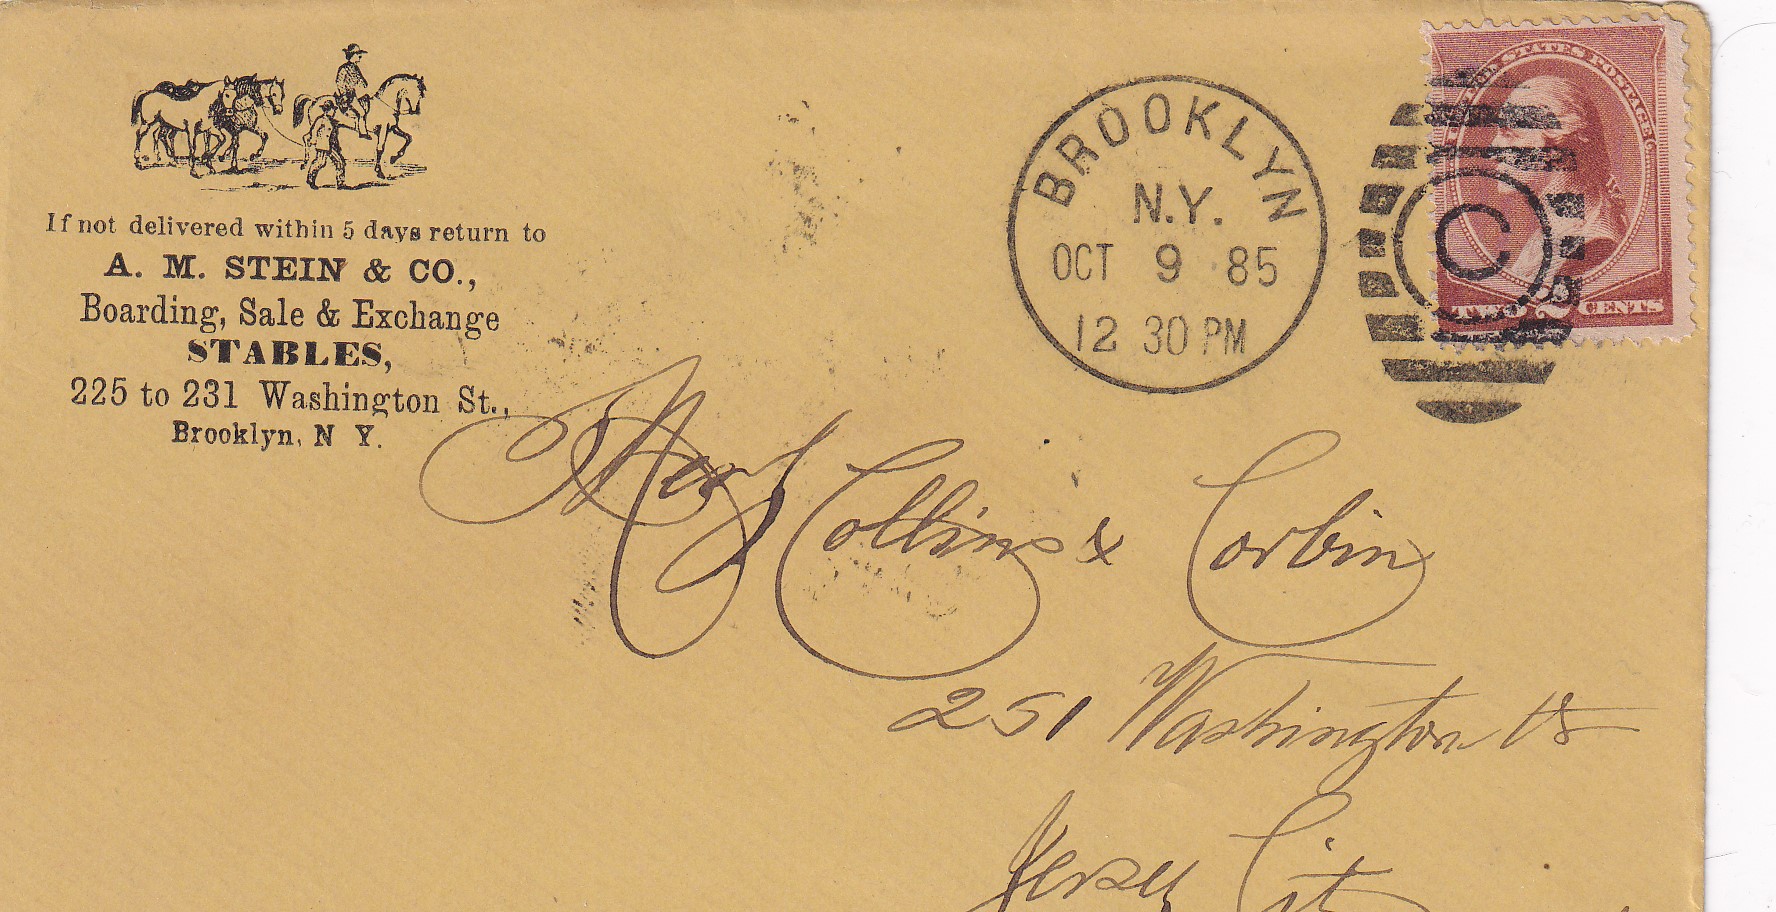 If not delivered within 5 days return to
A. M. STEIN & CO.,
Boarding, Sale & Exchange
STABLES,
225 to 231 Washington St.,
Brooklyn, N Y.
BROOKLYN
N.Y.
OCT 9 85
12 30 PM
C
STATES POSTAGE
TWO 2 CENTS
Collins & Corbin
251 Washington St
Jersey City